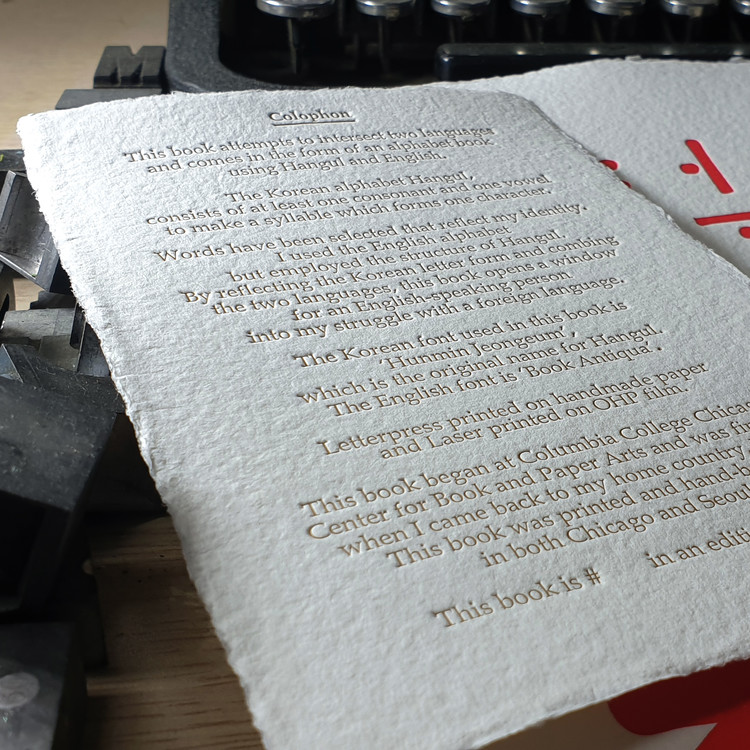 Colophon
This book attempts to intersect two languages
and comes in the form of an alphabet book
using Hangul and English.
The Korean alphabet Hangul,
consists of at least one consonant and one vowel
to make a syllable which forms one character.
Words have been selected that reflect my identity.
I used the English alphabet
but employed the structure of Hangul.
By reflecting the Korean letter form and combing
the two languages, this book opens a window
for an English-speaking person
into my struggle with a foreign language.
The Korean font used in this book is
'Hunmin Jeongeum',
which is the original name for Hangul.
The English font is 'Book Antiqua'.
Letterpress printed on handmade paper
and Laser printed on OHP film.
This book began at Columbia College Chica
Center for Book and Paper Arts and was fi
when I came back to my home country
This book was printed and hand b
in both Chicago and Seou
This book is # in an editi
M